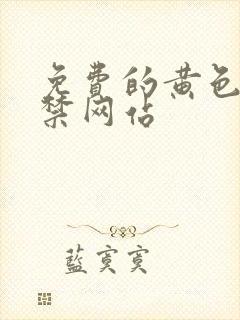 免費的黄色
禁网佔
藍寞寞